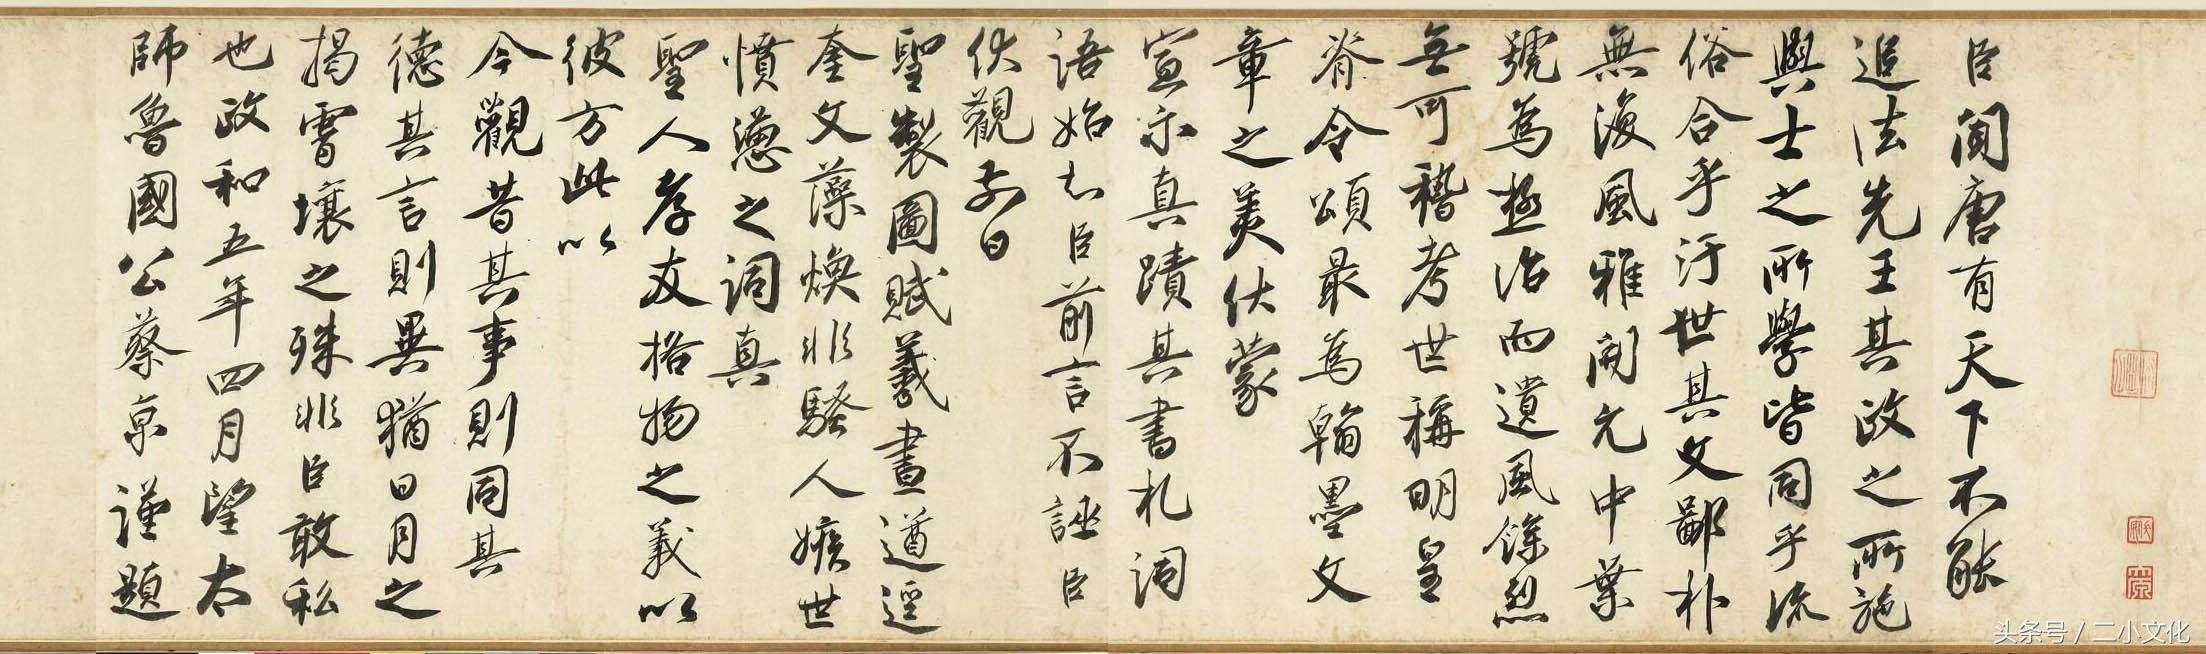 臣聞唐有天下不能
追法先王其政之所施
與士之所學皆同乎流
俗合乎汙世其文鄙朴
無復風雅開元中葉
號為極治而遺風餘烈
無可稽考世稱明皇
脊令頌最為翰墨文
章之美伏蒙
宣示真蹟其書札詞
語始知臣前言不誣臣
伏觀前日
聖製圖賦羲畫遒逕
奎文藻煥非騷人嫉世
憤懣之詞真
聖人孝友格物之義以
彼方此以
今觀昔其事則同其
德其言則異猶日月之
揭霄壤之殊非臣敢私
也政和五年四月望太
師魯國公蔡京謹題
头条号 / 二小文化